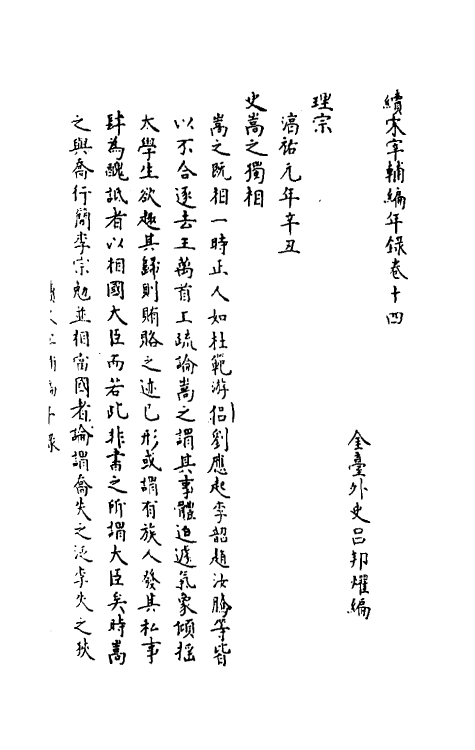 續宋宰輔編年錄卷十四
金臺外史呂邦燿編
理宗
淳祐元年辛丑
史嵩之獨相
嵩之既相一時正人如杜範游侶劉應起李韶趙汝騰等皆
以不合逐去王萬首上疏論嵩之謂其事體迫遽氣象傾搖
太學生欲趣其歸則賄賂之迹已形或謂有族人發其私事
肆為醜詆者以相國大臣而若此非書之所謂大臣矣時嵩
之與喬行簡李宗勉並相當國者論謂喬失之泛李失之狹